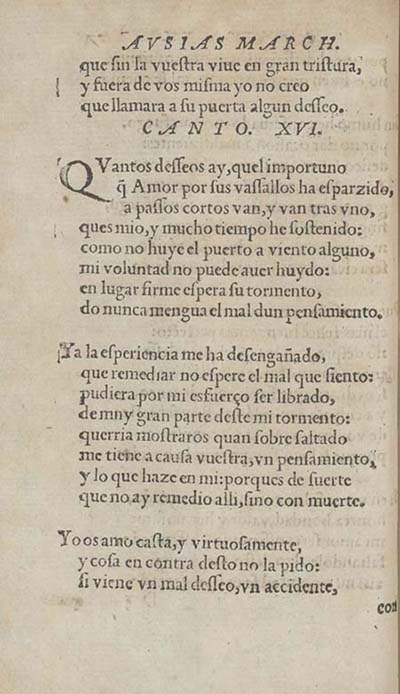 AVSIAS MARCH.
que sin la vuestra viue en gran tristura,
y fuera de vos misma yo no creo
que llamara a su puerta algun desseo.
CANTO. XVI.
QVantos desseos ay, quel importuno
q̃ Amor por sus vassallos ha esparzido,
a passos cortos van, y van tras vno,
ques mio, y mucho tiempo he sostenido:
como no huye el puerto a viento alguno,
mi voluntad no puede auer huydo:
en lugar firme espera su tormento,
do nunca mengua el mal dun pensamiento.
Ya la esperiencia me ha desengañado,
que remediar no espere el mal que siento:
pudiera por mi esfuerço ser librado,
de mny gran parte deste mi tormento:
querria mostraros quan sobre saltado
me tiene a causa vuestra, vn pensamiento,
y lo que haze en mi: porques de suerte
que no ay remedio alli, sino con muerte.
Yo os amo casta, y virtuosamente,
y cosa en contra desto no la pido:
si viene vn mal desseo, vn accidente,
con